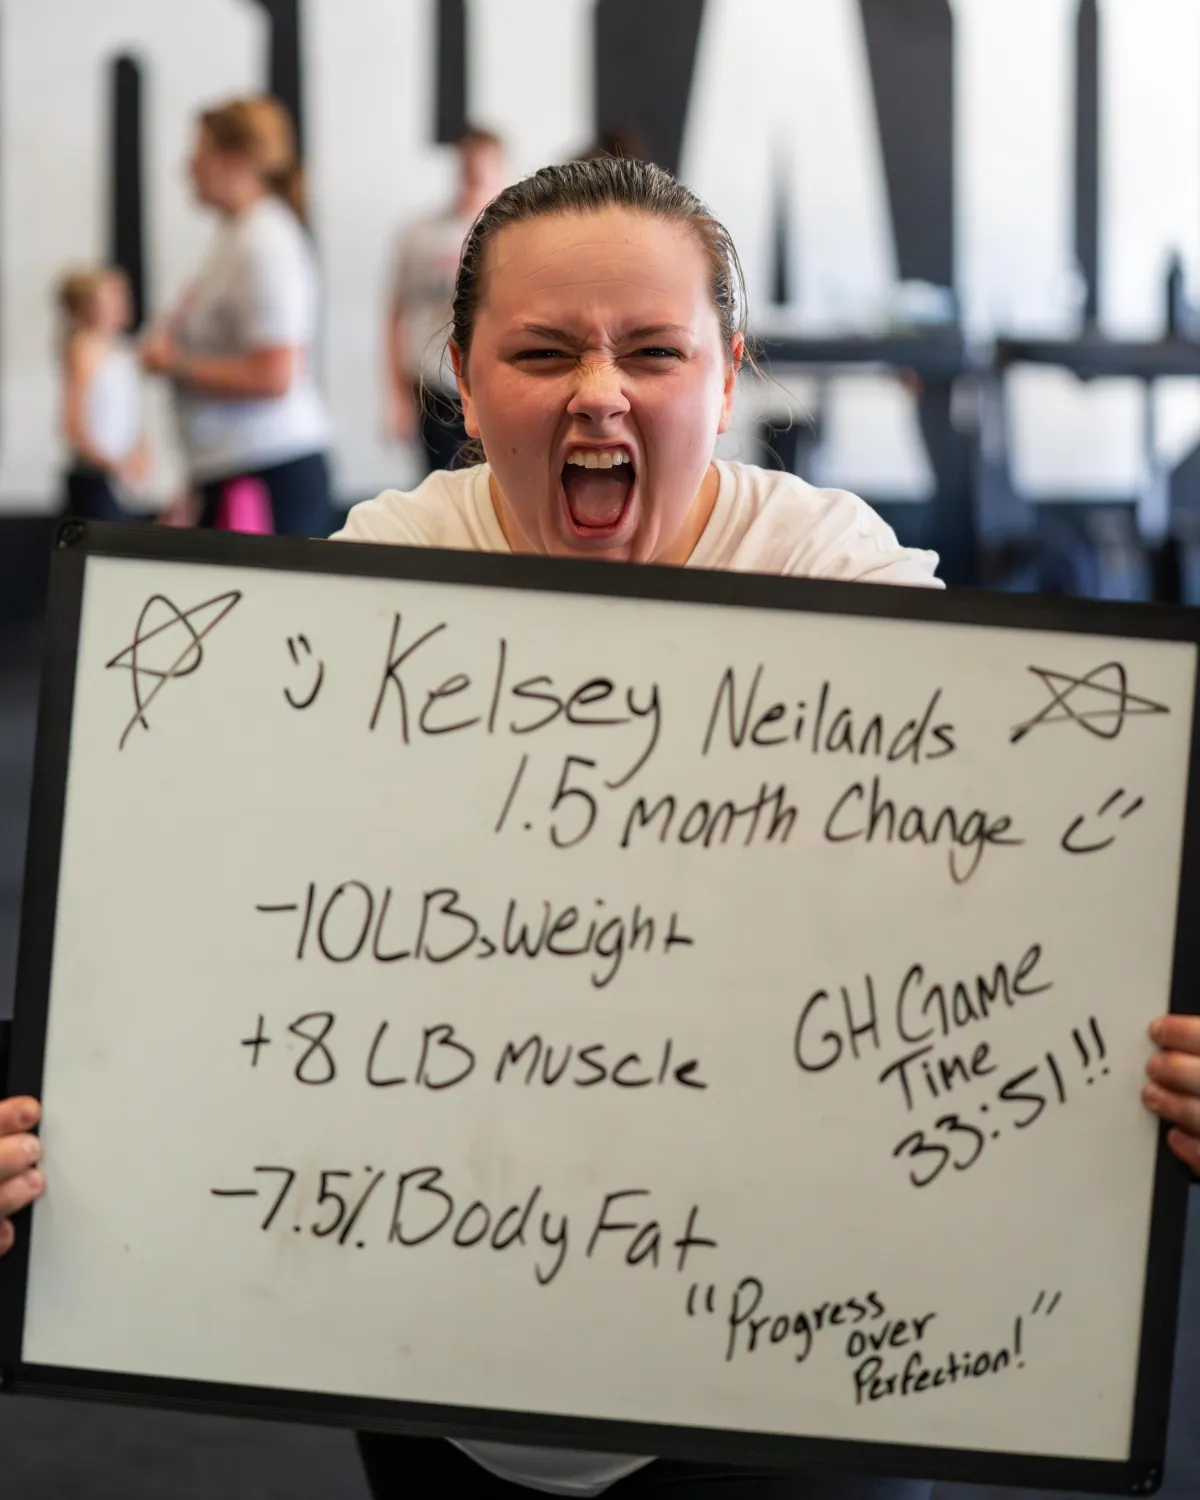 Kelsey Neilands
1.5 month Change
-10LBs Weight
+8 LB Muscle
GH Game
Time
33:51!!
-7.5% Body Fat
"Progress
over
Perfection!"